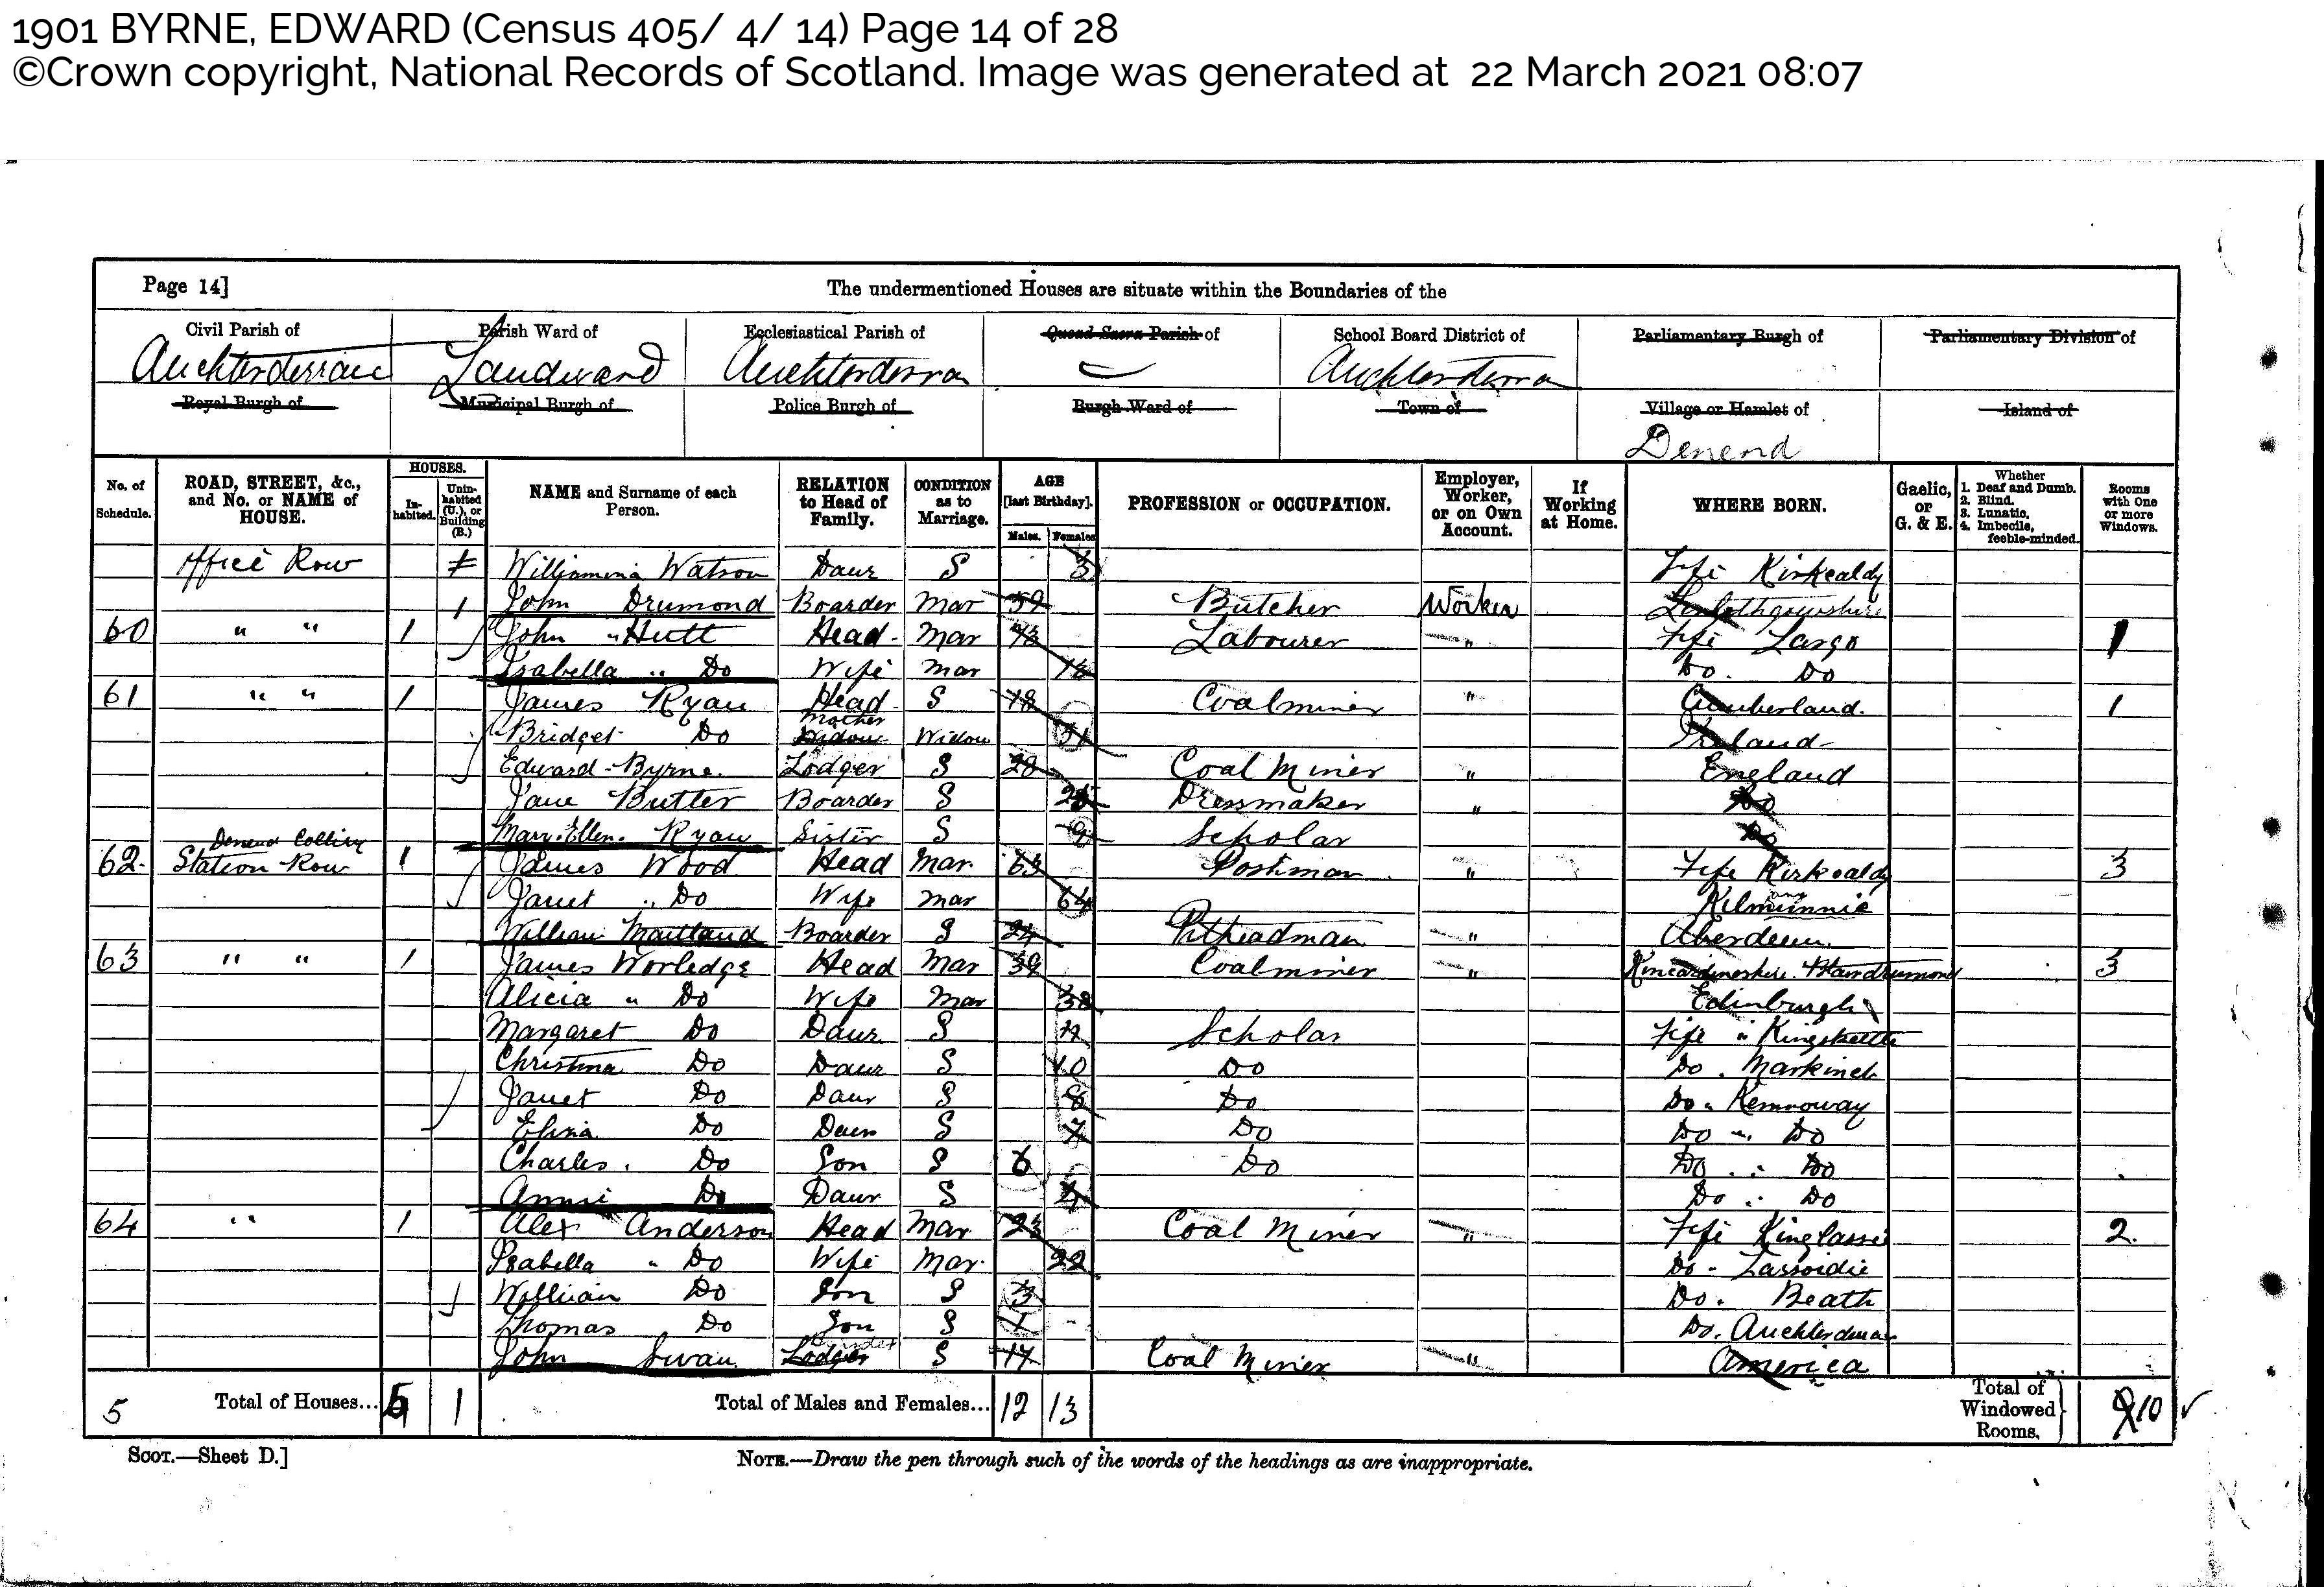 1901 BYRNE, EDWARD (Census 405/ 4/ 14) Page 14 of 28
©Crown copyright, National Records of Scotland. Image was generated at 22 March 2021 08:07
Page 14] The undermentioned Houses are situate within the Boundaries of the
Civil Parish of Parish Ward of Ecclesiastical Parish of Quoad Sacra Parish of School Board District of Parliamentary Burgh of Parliamentary Division of
Auchterderran Landward Auchterderra Auchterderra
Royal Burgh of Municipal Burgh of Police Burgh of Burgh Ward of Town of Village or Hamlet of Island of
Denend
No. of Schedule. ROAD, STREET, &c., and No. or NAME of HOUSE. HOUSES. Inhabited. Uninhabited (U.), or Building (B.) NAME and Surname of each Person. RELATION to Head of Family. CONDITION as to Marriage. AGE [last Birthday]. Males. Females. PROFESSION or OCCUPATION. Employer, Worker, or on Own Account. If Working at Home. WHERE BORN. Gaelic, or G. & E. Whether 1. Deaf and Dumb. 2. Blind. 3. Lunatic. 4. Imbecile, feeble-minded. Rooms with One or more Windows.
Office Row Williamina Watson Daur S 3 Fife Kirkcaldy
1 John Drumond Boarder Mar 59 Butcher Worker Linlithgowshire
60 " " 1 John " Hutt Head Mar Labourer " Fife Largo 1
Isabella " Do Wife Mar Do. Do
61 " " 1 James Ryan Head S 18 Coalminer " Cumberland. 1
Bridget Do Mother Widow Widow 51 Ireland
Edward Byrne. Lodger S 28 Coal Miner " England
Jane Butter Boarder S Dressmaker " Do
Mary Ellen. Ryan Sister S 9 Scholar Do
Denend Colliery
62. Station Row 1 James Wood Head Mar. 63 Postman " Fife Kirkcaldy 3
Janet " Do Wife Mar 64 Kilmunnie
William Maitland Boarder S 24 Pitheadman " Aberdeen.
63 " " 1 James Worledge Head Mar 39 Coalminer " Kincardineshire. Blairdrumond 3
Alicia " Do Wife Mar 38 Edinburgh
Margaret Do Daur S 11 Scholar Fife " Kingskettle
Christina Do Daur S 10 Do Do. Markinch
Janet Do Daur S 8 Do Do " Kennoway
Eliza Do Daur S 7 Do Do " Do
Charles. Do Son S 6 Do Do " Do
Annie Do Daur S 4 Do " Do
64 " 1 Alex Anderson Head Mar 23 Coal Miner " Fife Kinglassie 2.
Isabella " Do Wife Mar. 22 Do - Lassoidie
William Do Son S 3 Do. Beath
Thomas Do Son S 1 Do. Auchterderran
John Swan Lodger S 17 Coal Miner " America
5 Total of Houses... 5 1 Total of Males and Females... 12 13 Total of Windowed Rooms. 9 10
SCOT.—Sheet D.] NOTE.—Draw the pen through such of the words of the headings as are inappropriate.